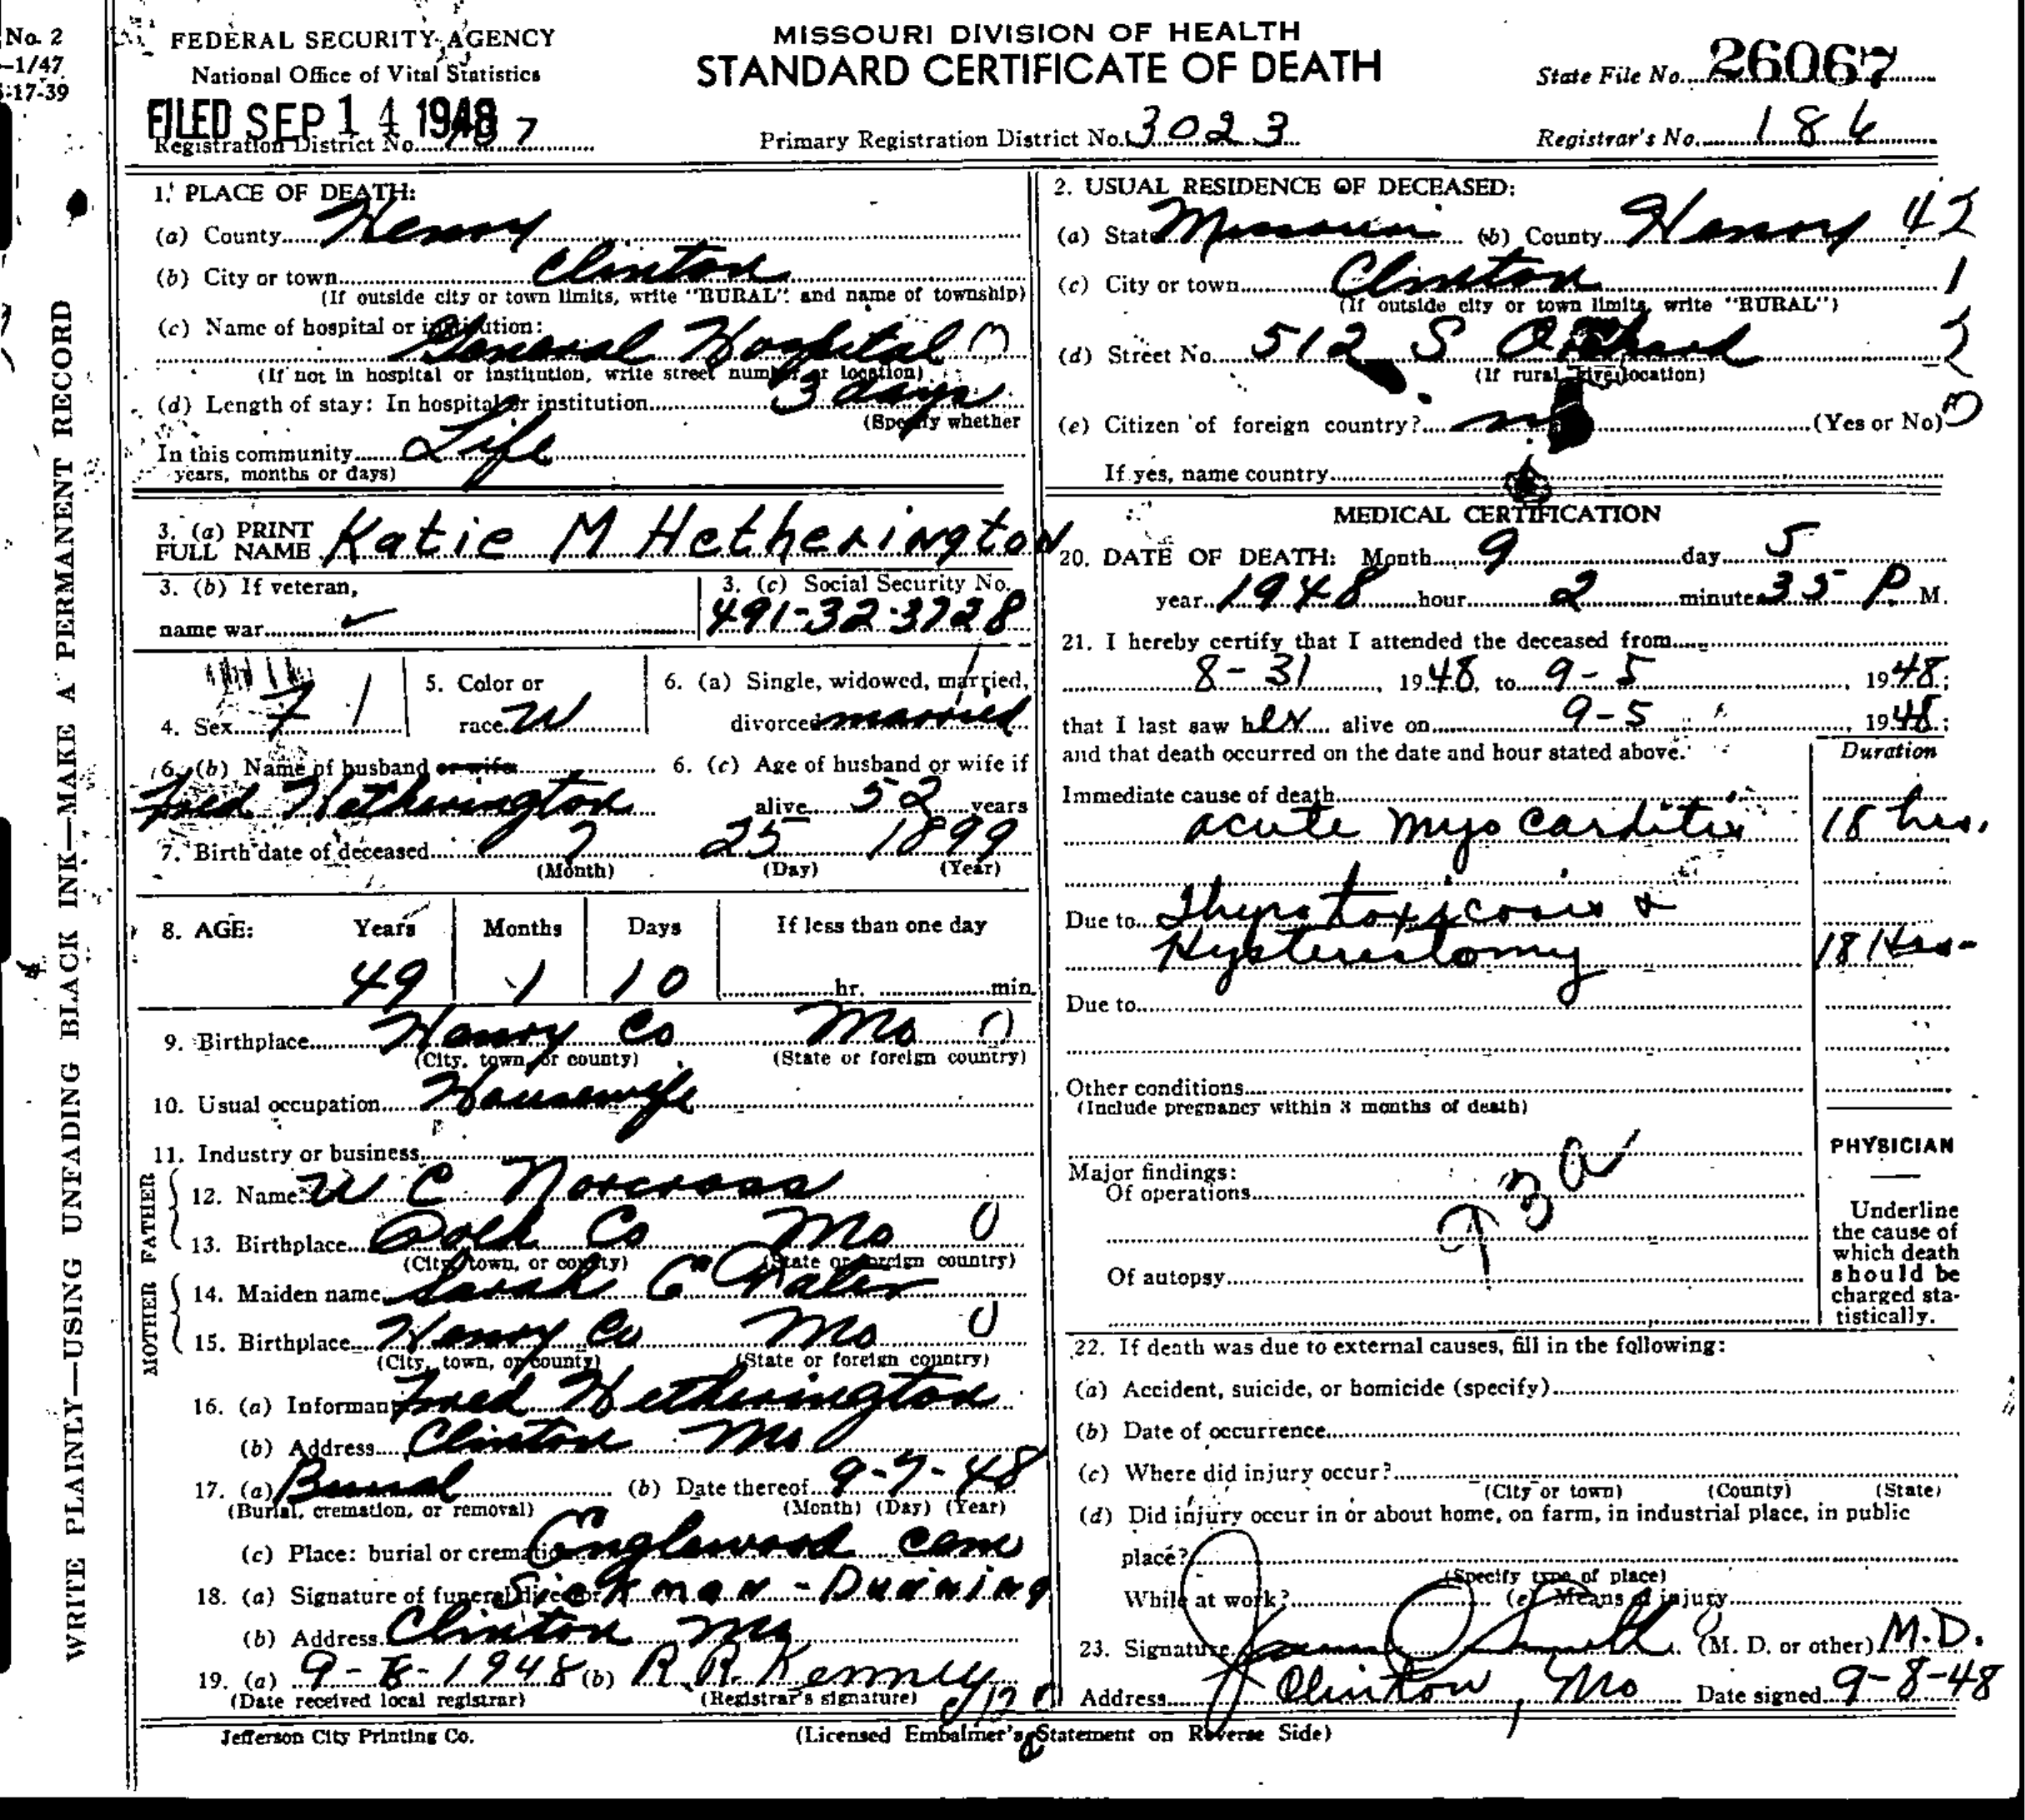 No. 2
-1/47
17-39
WRITE PLAINLY—USING UNFADING BLACK INK—MAKE A PERMANENT RECORD
FEDERAL SECURITY AGENCY
National Office of Vital Statistics
FILED SEP 14 1948
Registration District No.
MISSOURI DIVISION OF HEALTH
STANDARD CERTIFICATE OF DEATH
Primary Registration District No. 3023
State File No. 26067
Registrar's No. 186
1. PLACE OF DEATH:
(a) County Henry
(b) City or town Clinton
(If outside city or town limits, write "RURAL" and name of township)
(c) Name of hospital or institution:
General Hospital
(If not in hospital or institution, write street number or location)
(d) Length of stay: In hospital or institution 3 days
(Specify whether
In this community Life
years, months or days)
2. USUAL RESIDENCE OF DECEASED:
(a) State Missouri (b) County Henry 42
(c) City or town Clinton 1
(If outside city or town limits, write "RURAL")
(d) Street No. 512 S Orchard 2
(If rural, give location)
(e) Citizen of foreign country? no (Yes or No) 0
If yes, name country
3. (a) PRINT
FULL NAME Katie M Hetherington
3. (b) If veteran,
name war
3. (c) Social Security No.
491-32-3728
4. Sex F 1
5. Color or
race W
6. (a) Single, widowed, married,
divorced married
6. (b) Name of husband or wife
Fred Hetherington
6. (c) Age of husband or wife if
alive 52 years
7. Birth date of deceased 7 25 1899
(Month) (Day) (Year)
8. AGE: Years Months Days If less than one day
49 1 10 hr. min.
9. Birthplace Henry Co Mo 0
(City, town, or county) (State or foreign country)
10. Usual occupation Housewife
11. Industry or business
FATHER
12. Name W C Norcross
13. Birthplace Polk Co Mo 0
(City, town, or county) (State or foreign country)
MOTHER
14. Maiden name Sarah C
15. Birthplace Henry Co Mo 0
(City, town, or county) (State or foreign country)
16. (a) Informant Fred Hetherington
(b) Address Clinton Mo
17. (a) Burial (b) Date thereof 9-7-48
(Burial, cremation, or removal) (Month) (Day) (Year)
(c) Place: burial or cremation Englewood cem
18. (a) Signature of funeral director Sickman-Dunning
(b) Address Clinton Mo
19. (a) 9-8-1948 (b) R.R. Kenney
(Date received local registrar) (Registrar's signature)
MEDICAL CERTIFICATION
20. DATE OF DEATH: Month 9 day 5
year 1948 hour 2 minute 35 P M.
21. I hereby certify that I attended the deceased from
8-31, 1948, to 9-5, 1948;
that I last saw her alive on 9-5, 1948;
and that death occurred on the date and hour stated above.
Duration
Immediate cause of death
acute myocarditis 18 hrs.
Due to Thyrotoxicosis &
Hysterectomy 18 Hrs-
Due to
Other conditions
(Include pregnancy within 3 months of death)
Major findings:
Of operations
93a
Of autopsy
PHYSICIAN
Underline
the cause of
which death
should be
charged sta-
tistically.
22. If death was due to external causes, fill in the following:
(a) Accident, suicide, or homicide (specify)
(b) Date of occurrence
(c) Where did injury occur?
(City or town) (County) (State)
(d) Did injury occur in or about home, on farm, in industrial place, in public
place?
(Specify type of place)
While at work? (e) Means of injury
23. Signature Smith (M. D. or other) M.D.
Address Clinton, Mo Date signed 9-8-48
Jefferson City Printing Co.
(Licensed Embalmer's Statement on Reverse Side)